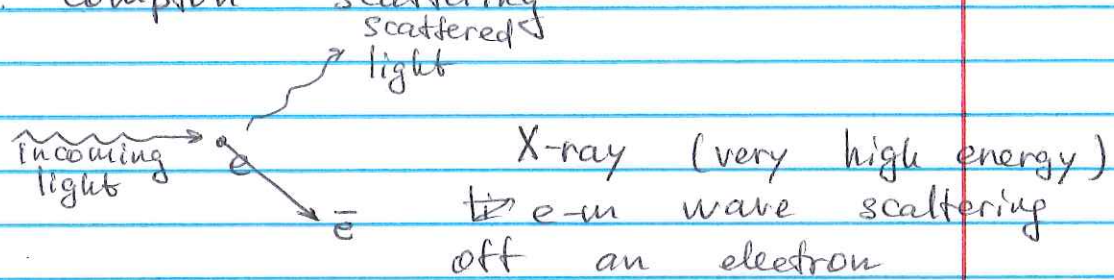 Compton scattering
scattered
light
incoming
light
e
ē
X-ray (very high energy)
e-m wave scattering
off an electron